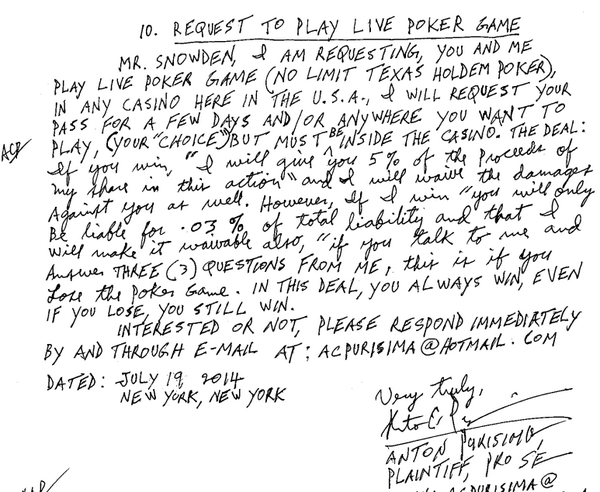 10. REQUEST TO PLAY LIVE POKER GAME
MR. SNOWDEN, I AM REQUESTING, YOU AND ME
PLAY LIVE POKER GAME (NO LIMIT TEXAS HOLDEM POKER),
IN ANY CASINO HERE IN THE U.S.A., I WILL REQUEST YOUR
PASS FOR A FEW DAYS AND/OR ANYWHERE YOU WANT TO
ACP PLAY, (YOUR "CHOICE") BUT MUST BE INSIDE THE CASINO. THE DEAL:
If you win, "I will give you 5% of the proceeds of
my share in this action" and I will waive the damages
Against you as well. However, If I win "you will only
Be liable for .03% of total liability and that I
will make it waivable also, "if you talk to me and
Answer THREE (3) QUESTIONS FROM ME, this is if you
Lose the Poker Game. IN THIS DEAL, YOU ALWAYS WIN, EVEN
IF YOU LOSE, YOU STILL WIN.
INTERESTED OR NOT, PLEASE RESPOND IMMEDIATELY
BY AND THROUGH E-MAIL AT: ACPURISIMA@HOTMAIL.COM
DATED: JULY 19, 2014
NEW YORK, NEW YORK
Very truly,
ANTON PURISIMA,
PLAINTIFF, PRO SE
ACPURISIMA@